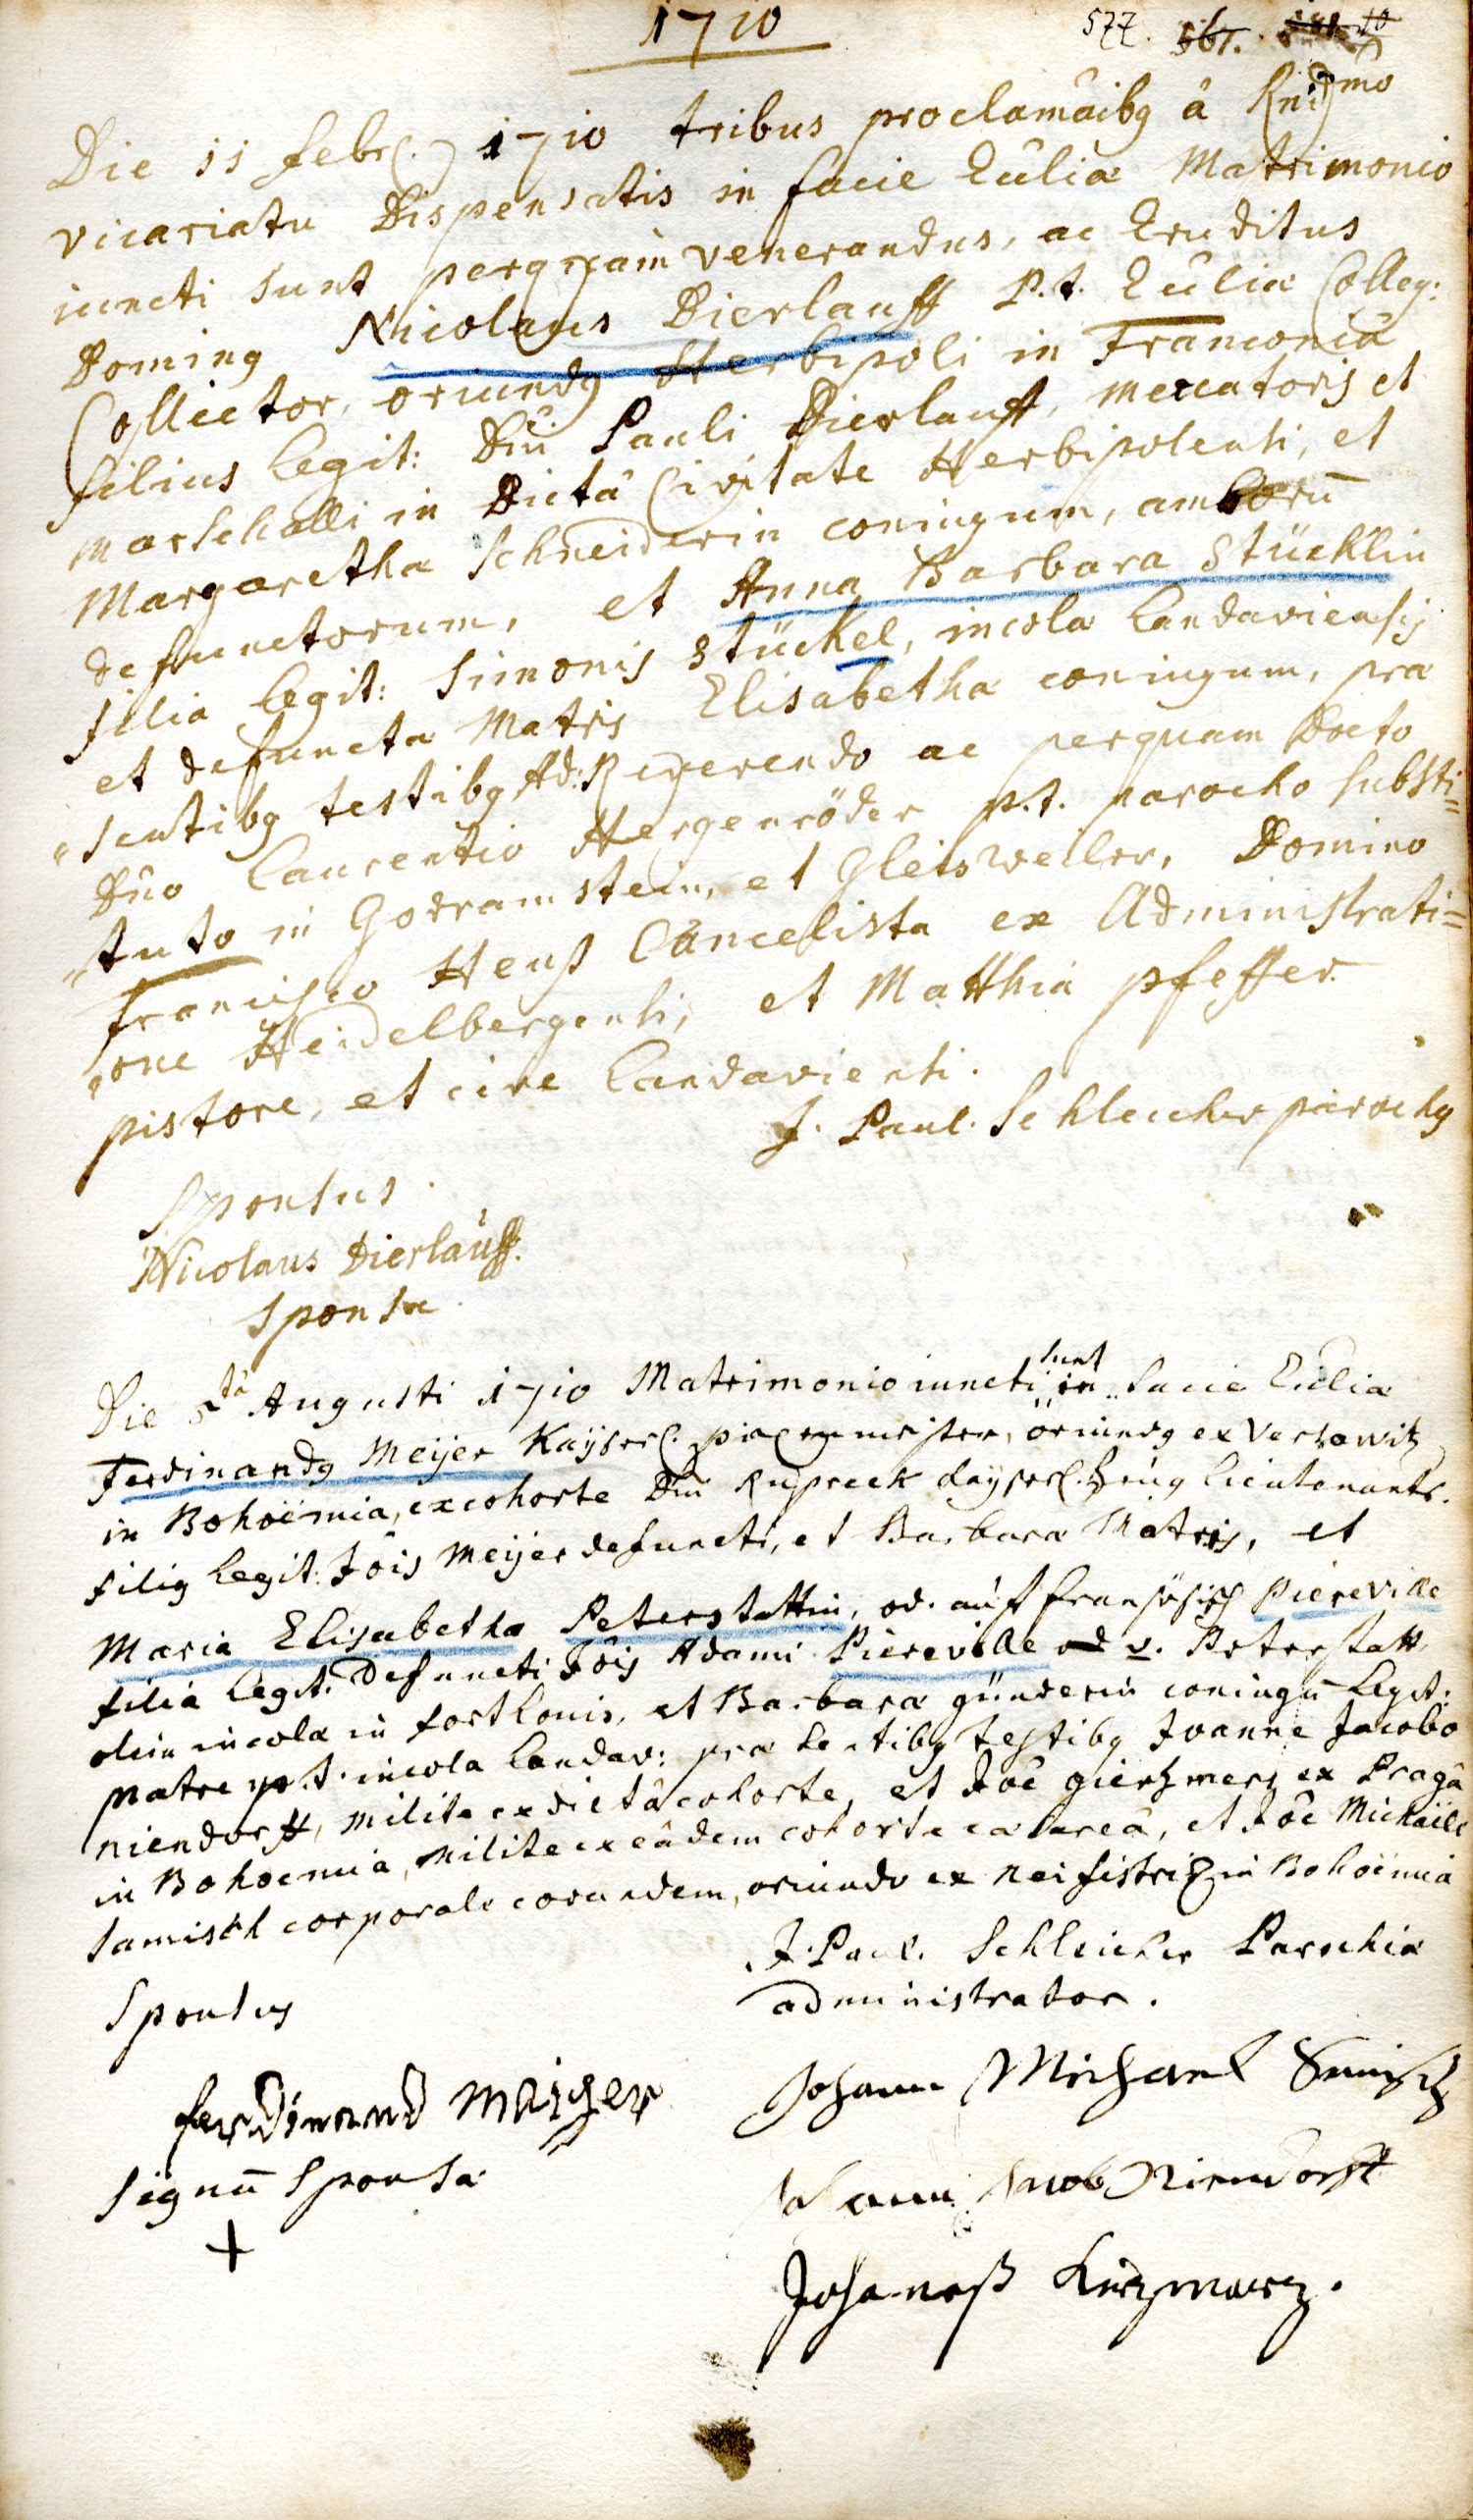 1710
577. 561.
Die 11 febr. 1710 tribus proclamâibg â Rndmo
vicariatu Dispensatis in facie Eccliæ Matrimonio
iuncti sunt perquam venerandus, ac Eruditus
Doming Nicolaus Dierlauff P.t. Eccliæ Colleg:
Collector, oriundg Herbipoli in Franconiâ
filius legit: Dni Pauli Dierlauff, mercatoris et
marschalli in Dictâ Civitate Herbipolensi, et
Margaretha Schneiderin coniugum, amborū
defunctorum, et Anna Barbara Stücklin
filia legit: Simonis Stückel, incola Landaviensis
et defuncta Matris Elisabetha coniugum, præ
sentibg testibg Ad: Reverendo ac perquam Docto
Dno Laurentio Hergenröder p.t. parocho substi=
tuto in Godramstein, et Gleisweiller, Domino
Francisco Henß Cancelista ex Administrati=
one Heidelbergensi, et Matthia pfeffer
pistore, et cive Landaviensi.
J. Paul. Schleicher parochg
Sponsus
Nicolaus Dierlauff.
Sponsa
Die 5tâ Augusti 1710 Matrimonio iuncti sunt in facie Eccliæ
Ferdinandg Meijer Kayserl. meister, oriundg ex Verkowitz
in Bohoëmia, ex cohorte Dni Rupreck Kayserl. Zeug lieutenants.
filig legit: Jōis Meijer defuncti, et Barbara Matris, et
Maria Elisabetha Peterstattin, od. auf französisch Piereville
filia legit: Defuncti Jōis Adami Piereville v. Peterstatt,
olim incola in fortlouis, et Barbara günderin coniugū legit:
matre p.t. incola Landav: præsentibg testibg Joanne Jacobo
niendorff, milite ex dictâ cohorte, et Jōe giertzmertz ex Pragâ
in Bohoemia, milite ex eâdem cohorte cæsareâ, et Jōe Michaële
Samisch corporale eorundem, oriundo ex neifistritz in Bohoëmia
J. Paul. Schleicher Parochiæ
administrator.
Sponsus
ferdinand Maijer
Johann Michael Samisch
Signū Sponsæ
+
Johann Jacob Niendorff
Johaneß Kirtzmertz.